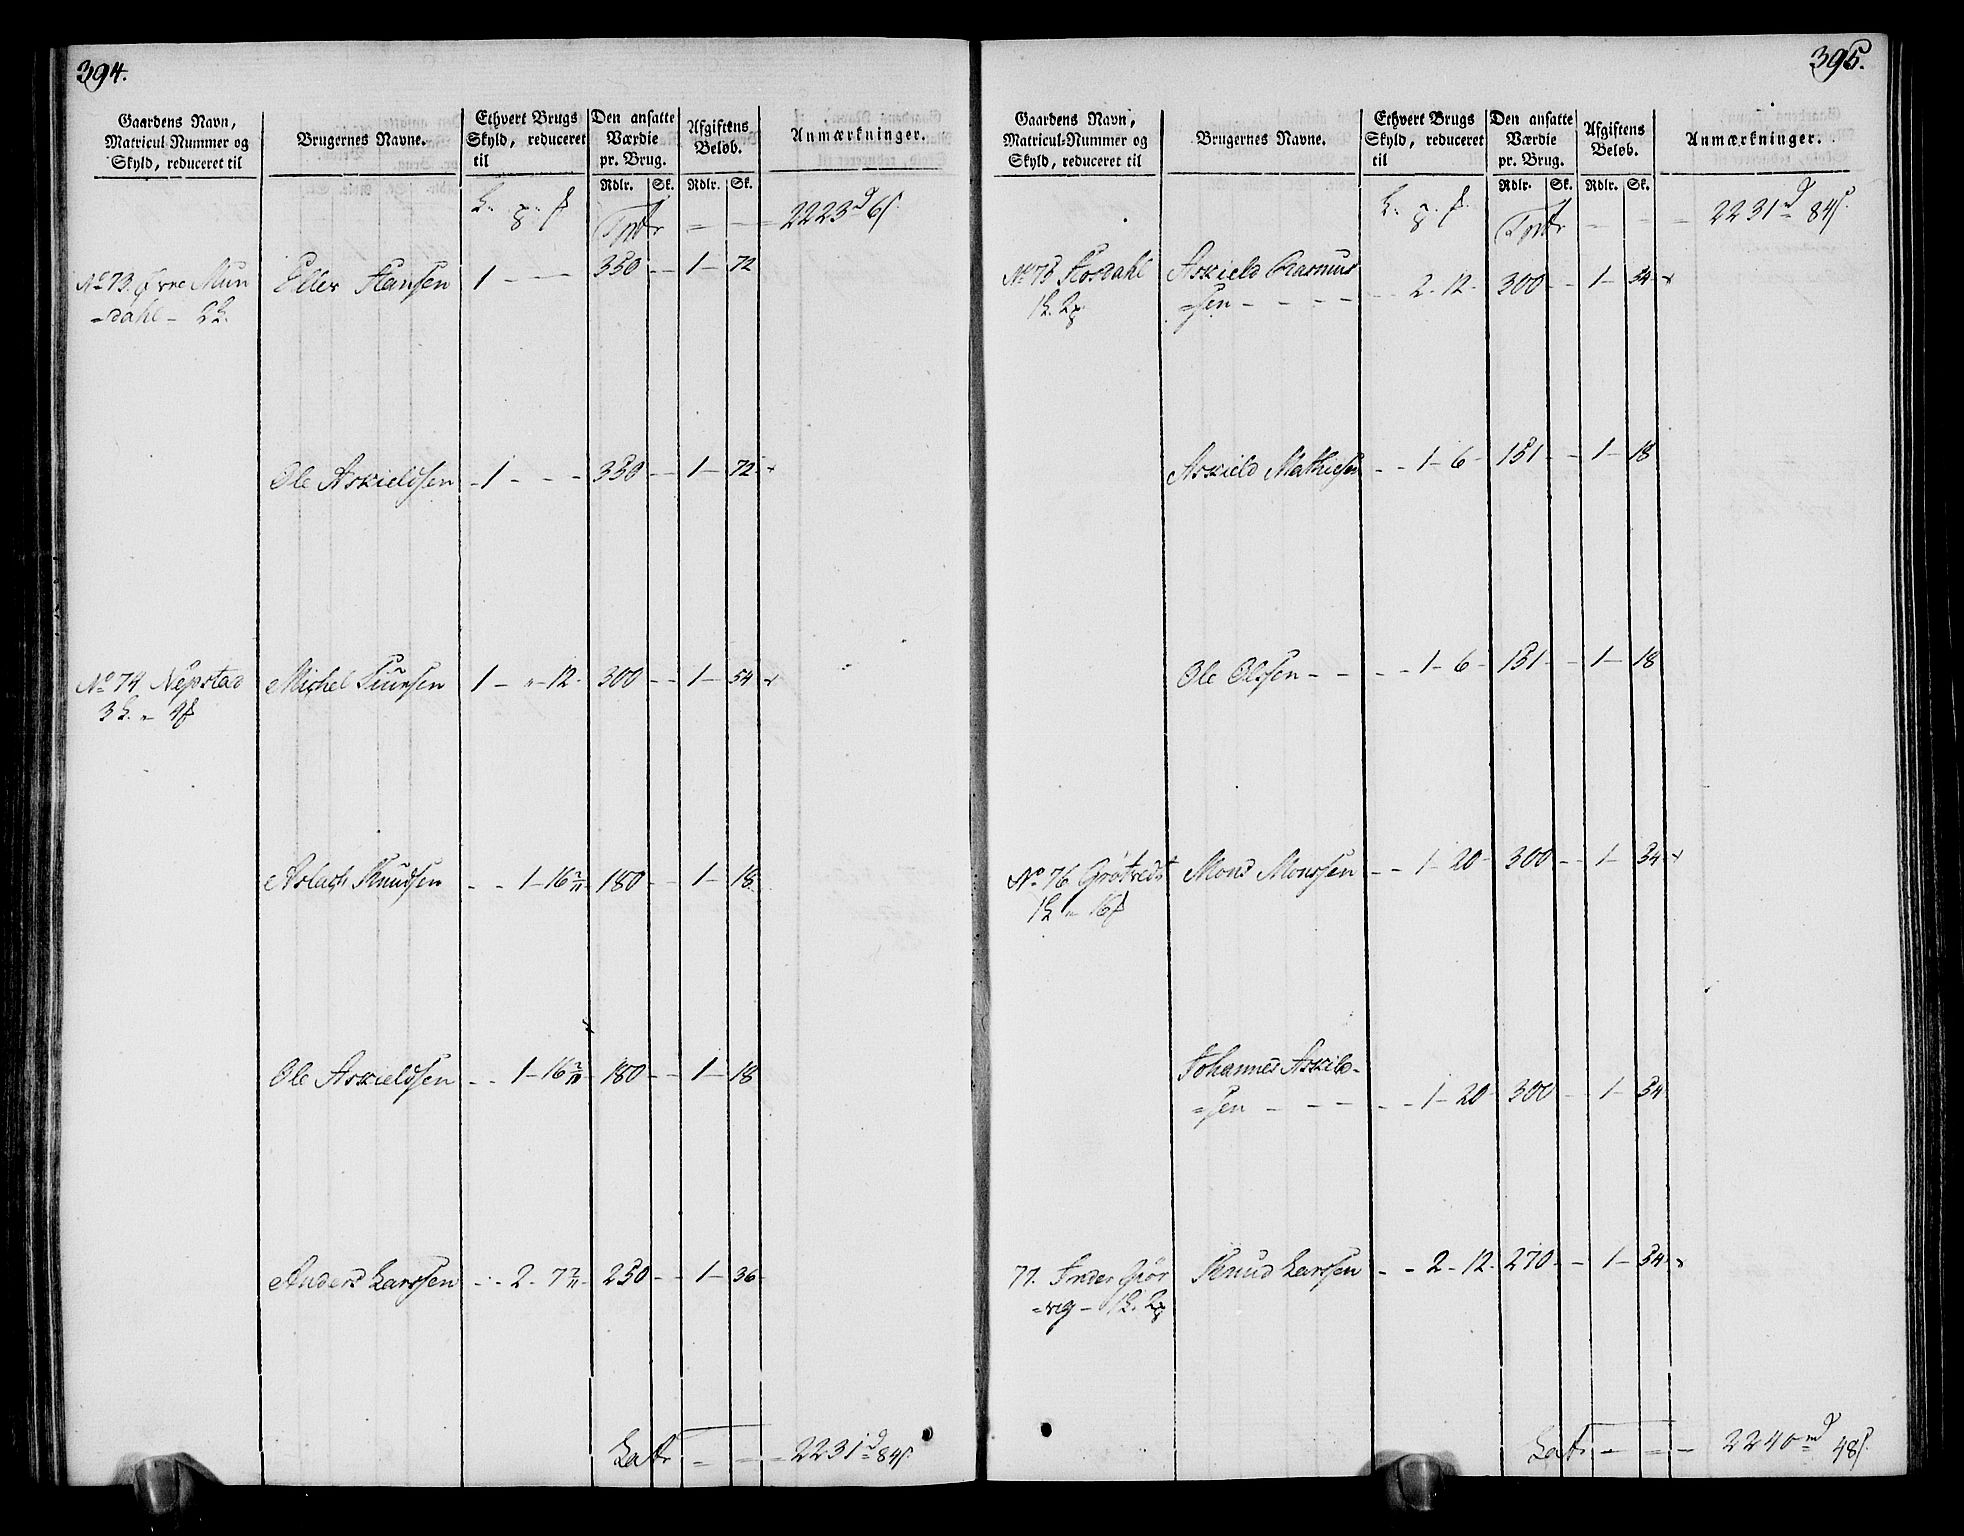 394.
Gaardens Navn,
Matricul-Nummer og
Skyld, reduceret til
Brugernes Navne.
Ethvert Brugs
Skyld, reduceret
til
Den ansatte
Værdie
pr. Brug.
Afgiftens
Beløb.
Anmærkninger.
Rdlr. Sk. Rdlr. Sk.
Tpt 2223 d 6 s.
No 73. Øvre Mun Eller Hansen 1 - - 350 - 1 - 72
=dahl - 2 L.
Ole Askieldsen - 1 - - - 350 - 1 - 72
No 74 Nepstad Michel Siursen 1 - " - 12 - 300 - 1 - 54
3 L. " 4
Aslach Knudsen - - 1 - 16 2/11 180 - 1 - 18
Ole Askieldsen - - 1 - 16 2/11 180 - 1 - 18
Anders Larssen - - 2 - 7 7/11 250 - 1 - 36
Lat 2231 d 84 s.
395.
Gaardens Navn,
Matricul-Nummer og
Skyld, reduceret til
Brugernes Navne.
Ethvert Brugs
Skyld, reduceret
til
Den ansatte
Værdie
pr. Brug.
Afgiftens
Beløb.
Anmærkninger.
Rdlr. Sk. Rdlr. Sk.
Tpt 2231 d 84 s.
No 75 Hosdahl Askield Rasmus
1 L. 2 =sen - - - - 2 - 12 - 300 - 1 - 54
Askield Mathiesen - - 1 - 6 - 151 - 1 - 18
Ole Olssen - - - - 1 - 6 - 151 - 1 - 18
No 76 Grøtvedt Mons Monssen - - 1 - 20 - 300 - 1 - 54
1 L " 16
Johannes Askild-
=sen - - - - - 1 - 20 - 300 - 1 - 54
77. Inder Giør Knud Larssen - - 2 - 12 - 270 - 1 - 54
=vig - 1 L. 2
Lat 2240 d 48 s.